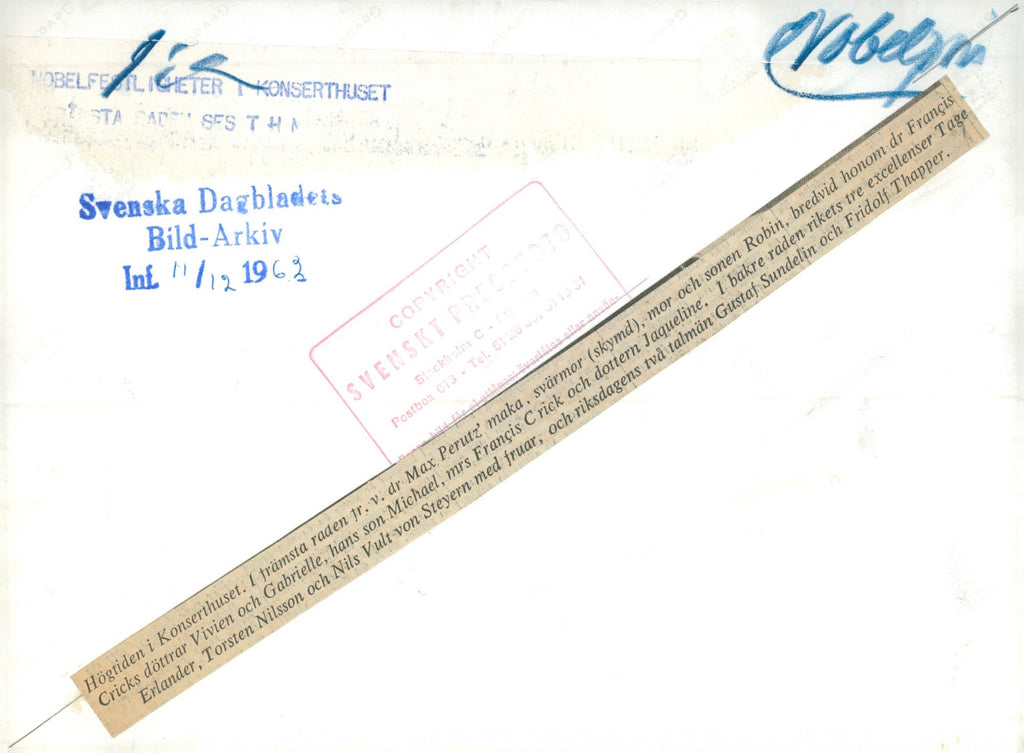 Nobelpri
NOBELFESTLIGHETER I KONSERTHUSET
Svenska Dagbladets
Bild-Arkiv
Inf. 11/12 1962
COPYRIGHT
SVENSKT PRESSFOTO
Stockholm C
Postbox 613 - Tel.
Högtiden i Konserthuset. I främsta raden fr. v. dr Max Perutz' maka, svärmor (skymd), mor och sonen Robin, bredvid honom dr Françis
Cricks döttrar Vivien och Gabrielle, hans son Michael, mrs Françis Crick och dottern Jaqueline. I bakre raden rikets tre excellenser Tage
Erlander, Torsten Nilsson och Nils Vult von Steyern med fruar, och riksdagens två talmän Gustaf Sundelin och Fridolf Thapper.